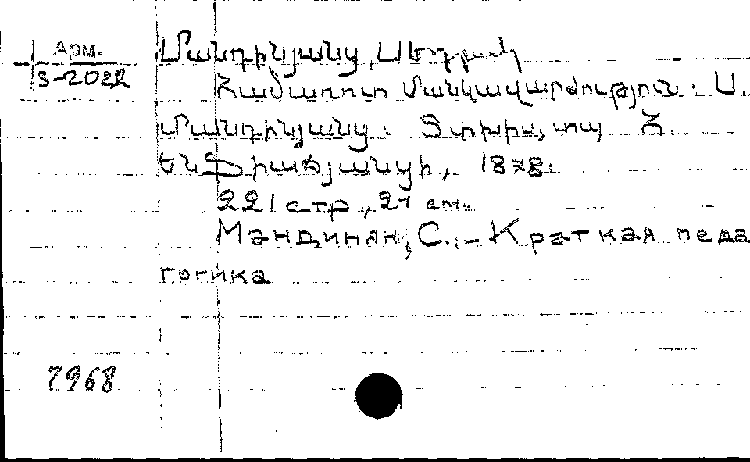 Арм.
3-2022
Մանդինյանց, Սեդրակ
Համառոտ մանկավարժություն. Ս.
Մանդինյանց. Տփխիս, տպ Հ.
Էնֆիաճյանցի, 1878.
221 стр, 21 см.
Мандинян, С. - Краткая педа
гогика
7968